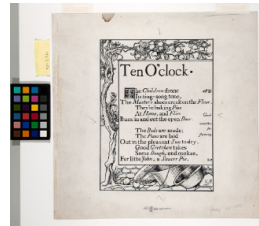 Ten O'clock.
The Children drone
In sing-song tone,
The Master's shoes creak on the Floor,
They're baking Pies
At Home, and Flies
Buzz in and out the open Door.
The Beds are made;
The Pans are laid
Out in the pleasant Sun to dry,
Good Gretchen takes
Some Dough, and makes,
For little John, a Saucer Pie.